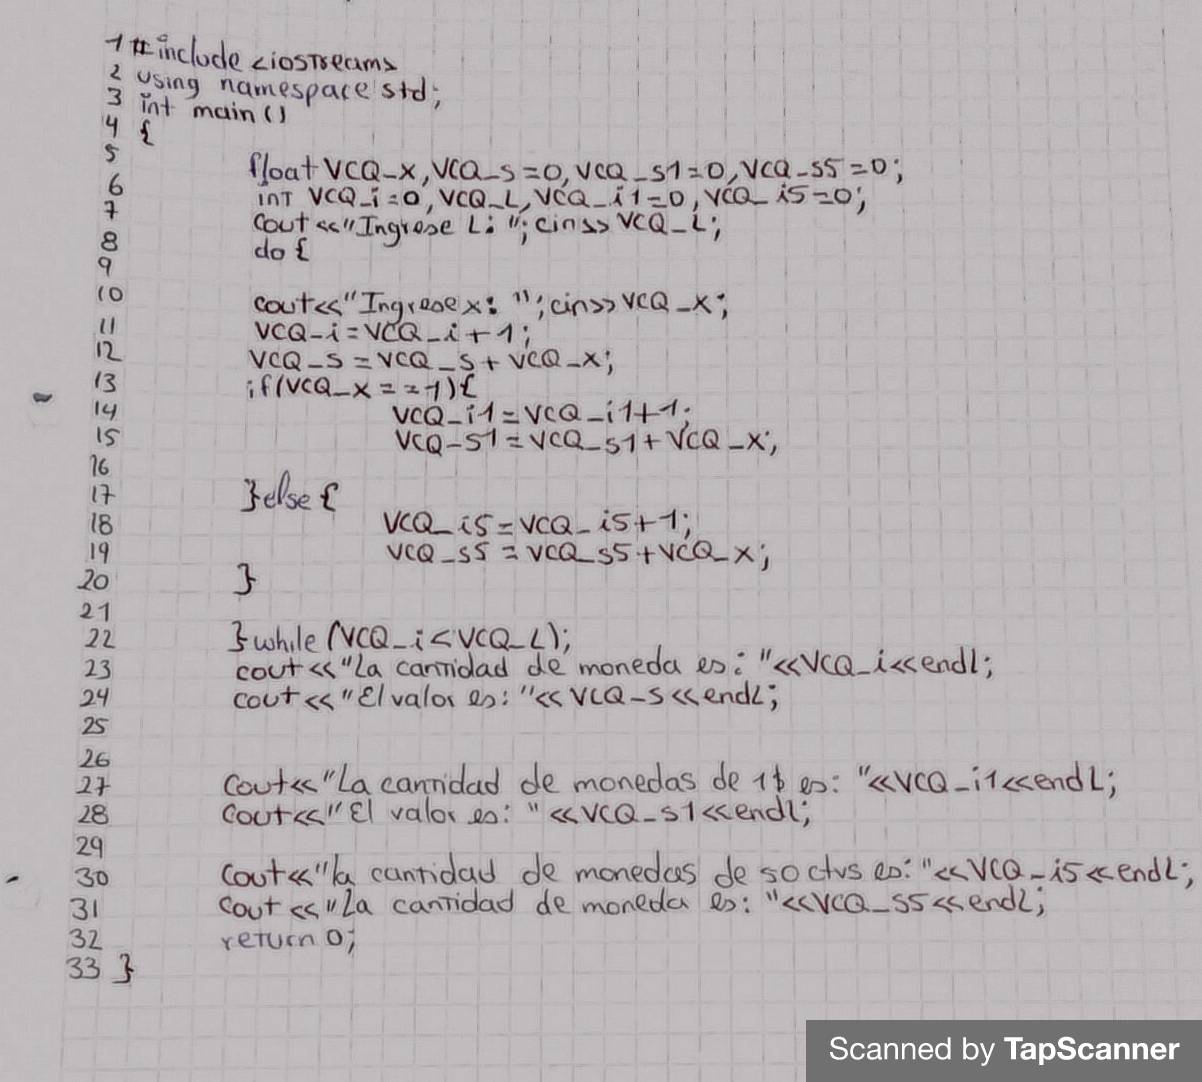 1 #include <iostream>
2 using namespace std;
3 int main()
4 {
5 float VCQ_x, VCQ_s=0, VCQ_s1=0, VCQ_s5=0;
6 int VCQ_i=0, VCQ_L, VCQ_i1=0, VCQ_i5=0;
7 cout<<"Ingrese L: ";cin>>VCQ_L;
8 do {
9
10 cout<<"Ingrese x: ";cin>>VCQ_x;
11 VCQ_i=VCQ_i+1;
12 VCQ_s=VCQ_s+VCQ_x;
13 if(VCQ_x==1){
14 VCQ_i1=VCQ_i1+1;
15 VCQ_s1=VCQ_s1+VCQ_x;
16
17 }else{
18 VCQ_i5=VCQ_i5+1;
19 VCQ_s5=VCQ_s5+VCQ_x;
20 }
21
22 }while(VCQ_i<VCQ_L);
23 cout<<"La cantidad de moneda es: "<<VCQ_i<<endl;
24 cout<<"El valor es: "<<VCQ_s<<endl;
25
26
27 cout<<"La cantidad de monedas de 1$ es: "<<VCQ_i1<<endl;
28 cout<<"El valor es: "<<VCQ_s1<<endl;
29
30 cout<<"la cantidad de monedas de 50 ctvs es: "<<VCQ_i5<<endl;
31 cout<<"La cantidad de moneda es: "<<VCQ_s5<<endl;
32 return 0;
33 }
Scanned by TapScanner